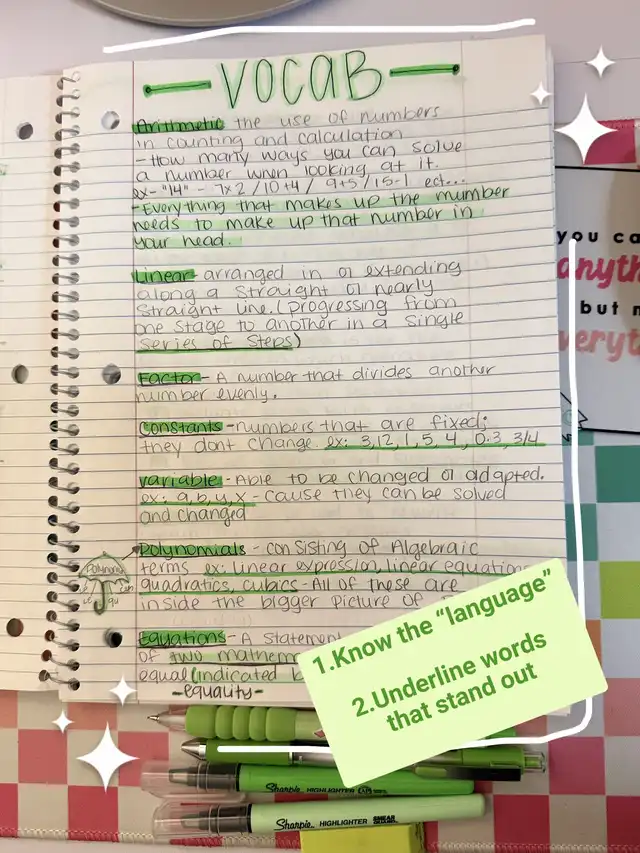 VOCAB
Arithmetic the use of numbers
in counting and calculation
- How many ways you can solve
a number when looking at it.
ex- "14" - 7x2 / 10+4 / 9+5 / 15-1 ect...
- Everything that makes up the number
needs to make up that number in
your head.
Linear arranged in or extending
along a straight or nearly
straight line. (progressing from
one stage to another in a single
series of steps)
Factor - A number that divides another
number evenly.
Constants - numbers that are fixed;
they dont change. ex: 3,12,1,5,4,0.3,3/4
variable - Able to be changed or adapted.
ex: a,b,y,x - cause they can be solved
and changed
Polynomials - consisting of Algebraic
terms ex: linear expression, linear equation
quadratics, cubics - All of these are
inside the bigger picture of
Polynomi
Equations - A statemen
of two mathem
equal (indicated b
- equality -
1.Know the “language”
2.Underline words
that stand out
you ca
anyth
but n
veryt
Sharpie HIGHLIGHTER
Sharpie HIGHLIGHTER SMEAR